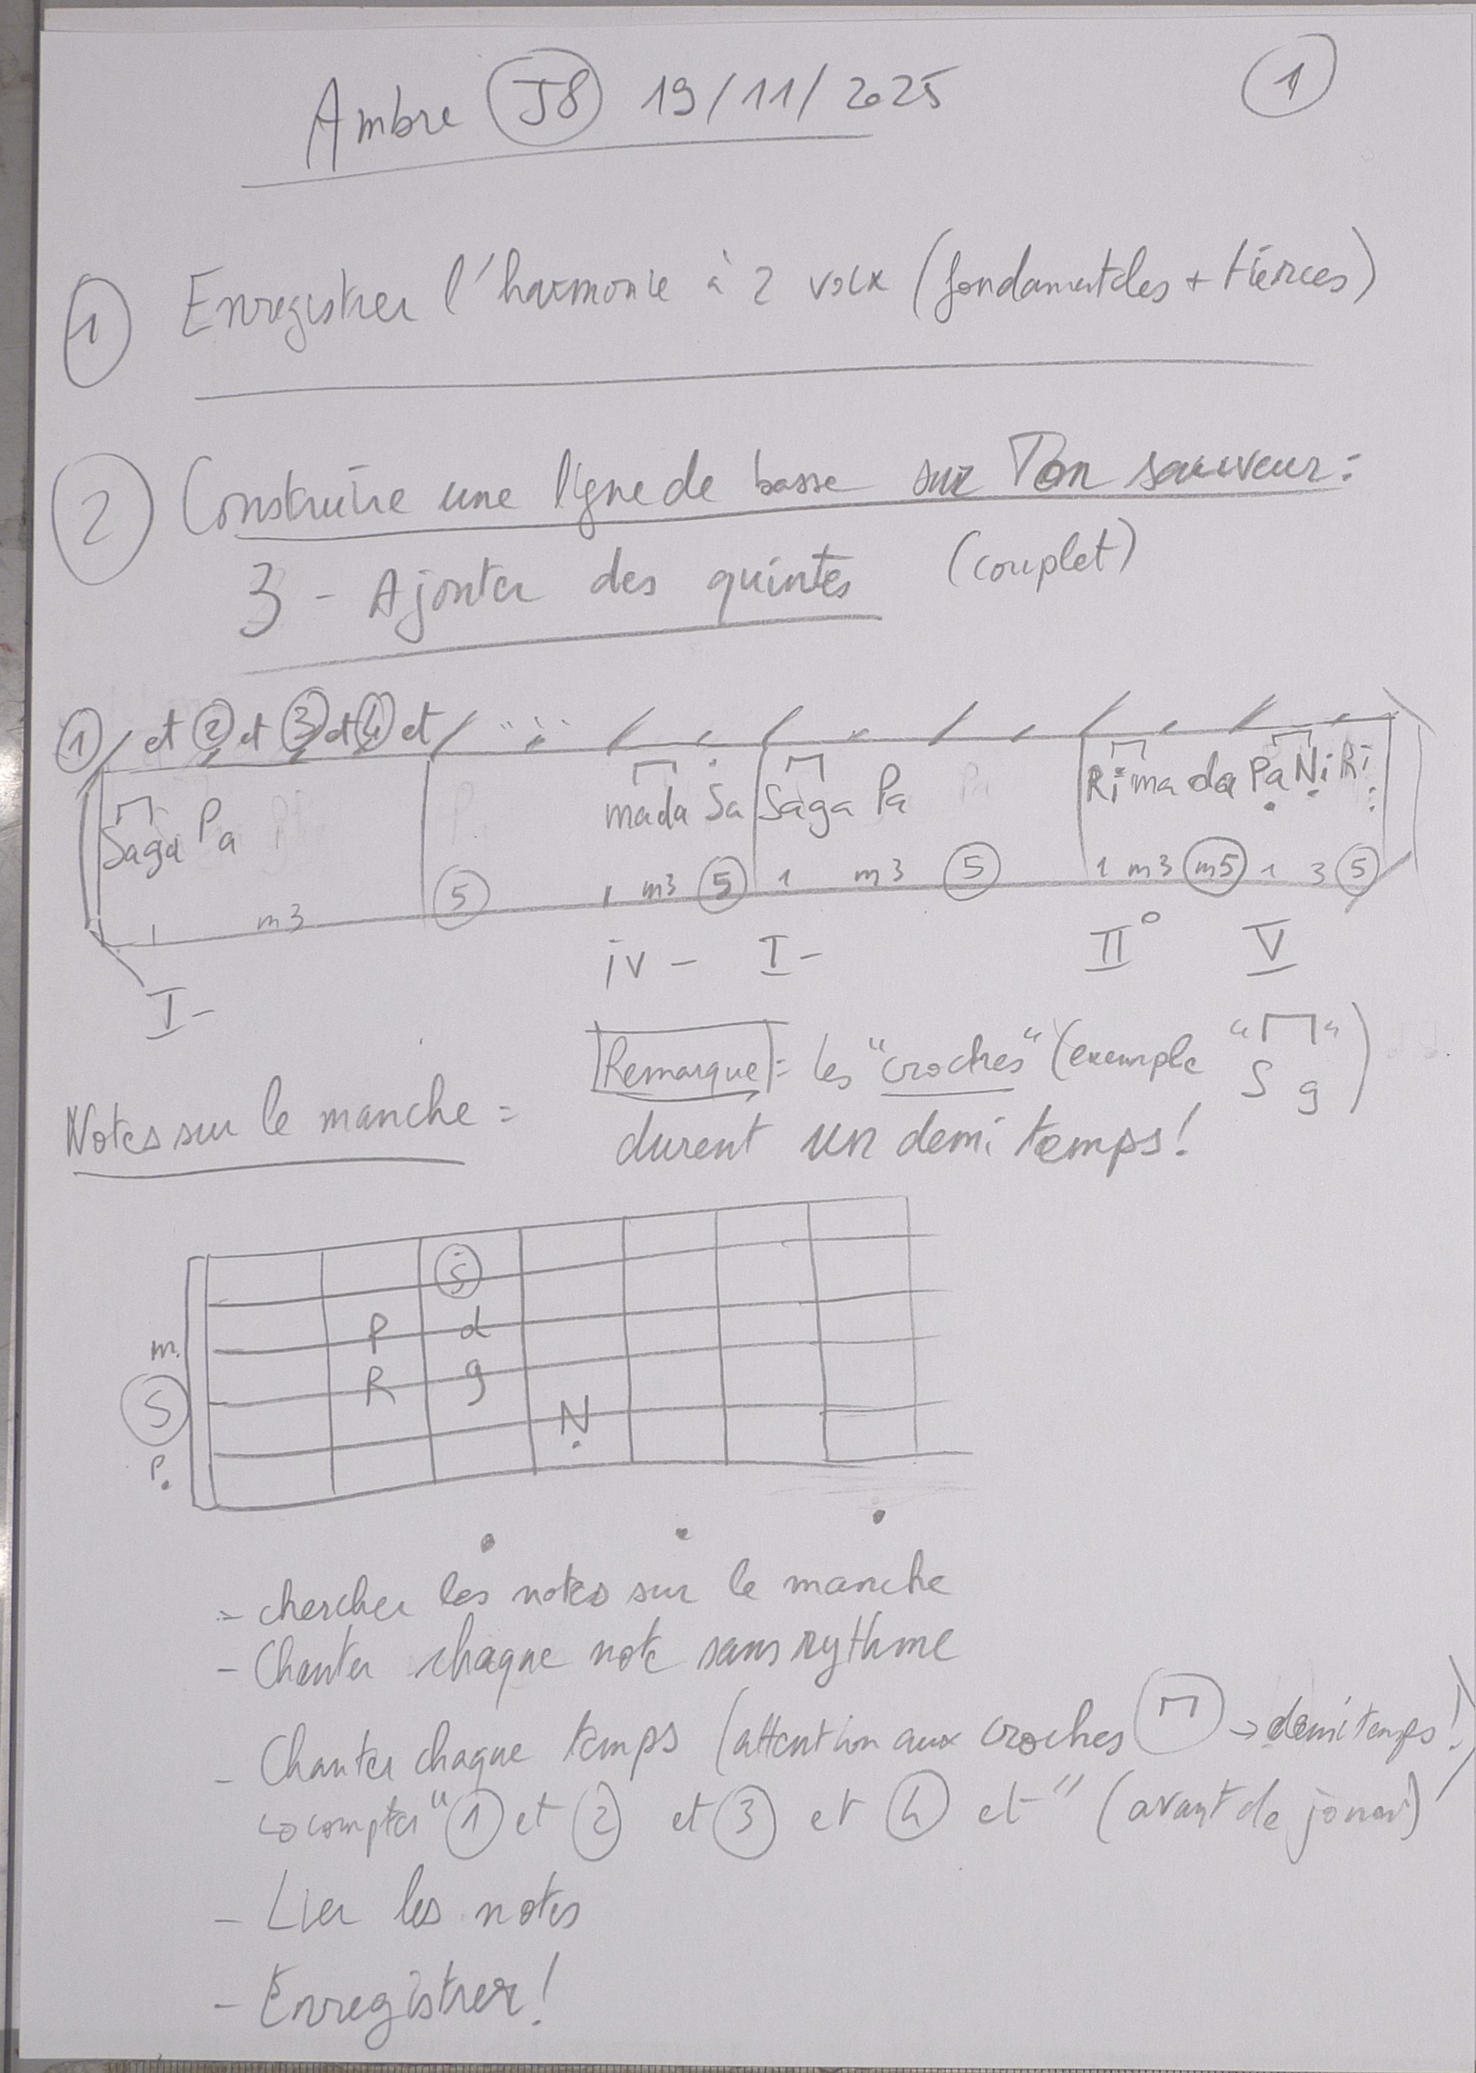 Ambre J8 19/11/2025
1
1 Enregistrer l'harmonie à 2 voix (fondamentales + tierces)
2 Construire une ligne de basse sur Ton sauveur :
3 - Ajouter des quintes (couplet)
1 et 2 et 3 et 4 et
Saga Pa mada Sa Saga Pa Ri ma da Pa Ni Ri
1 m3 5 1 m3 5 1 m3 5 1 m3 m5 1 3 5
I- iv- I- II° V
Remarque : les "croches" (exemple "S g")
durent un demi temps!
Notes sur le manche =
S
m P d
S R g
N
P
- chercher les notes sur le manche
- Chanter chaque note sans rythme
- Chanter chaque temps (attention aux croches → demi temps!)
↳ compter "1 et 2 et 3 et 4 et" (avant de jouer)
- Lier les notes
- Enregistrer!